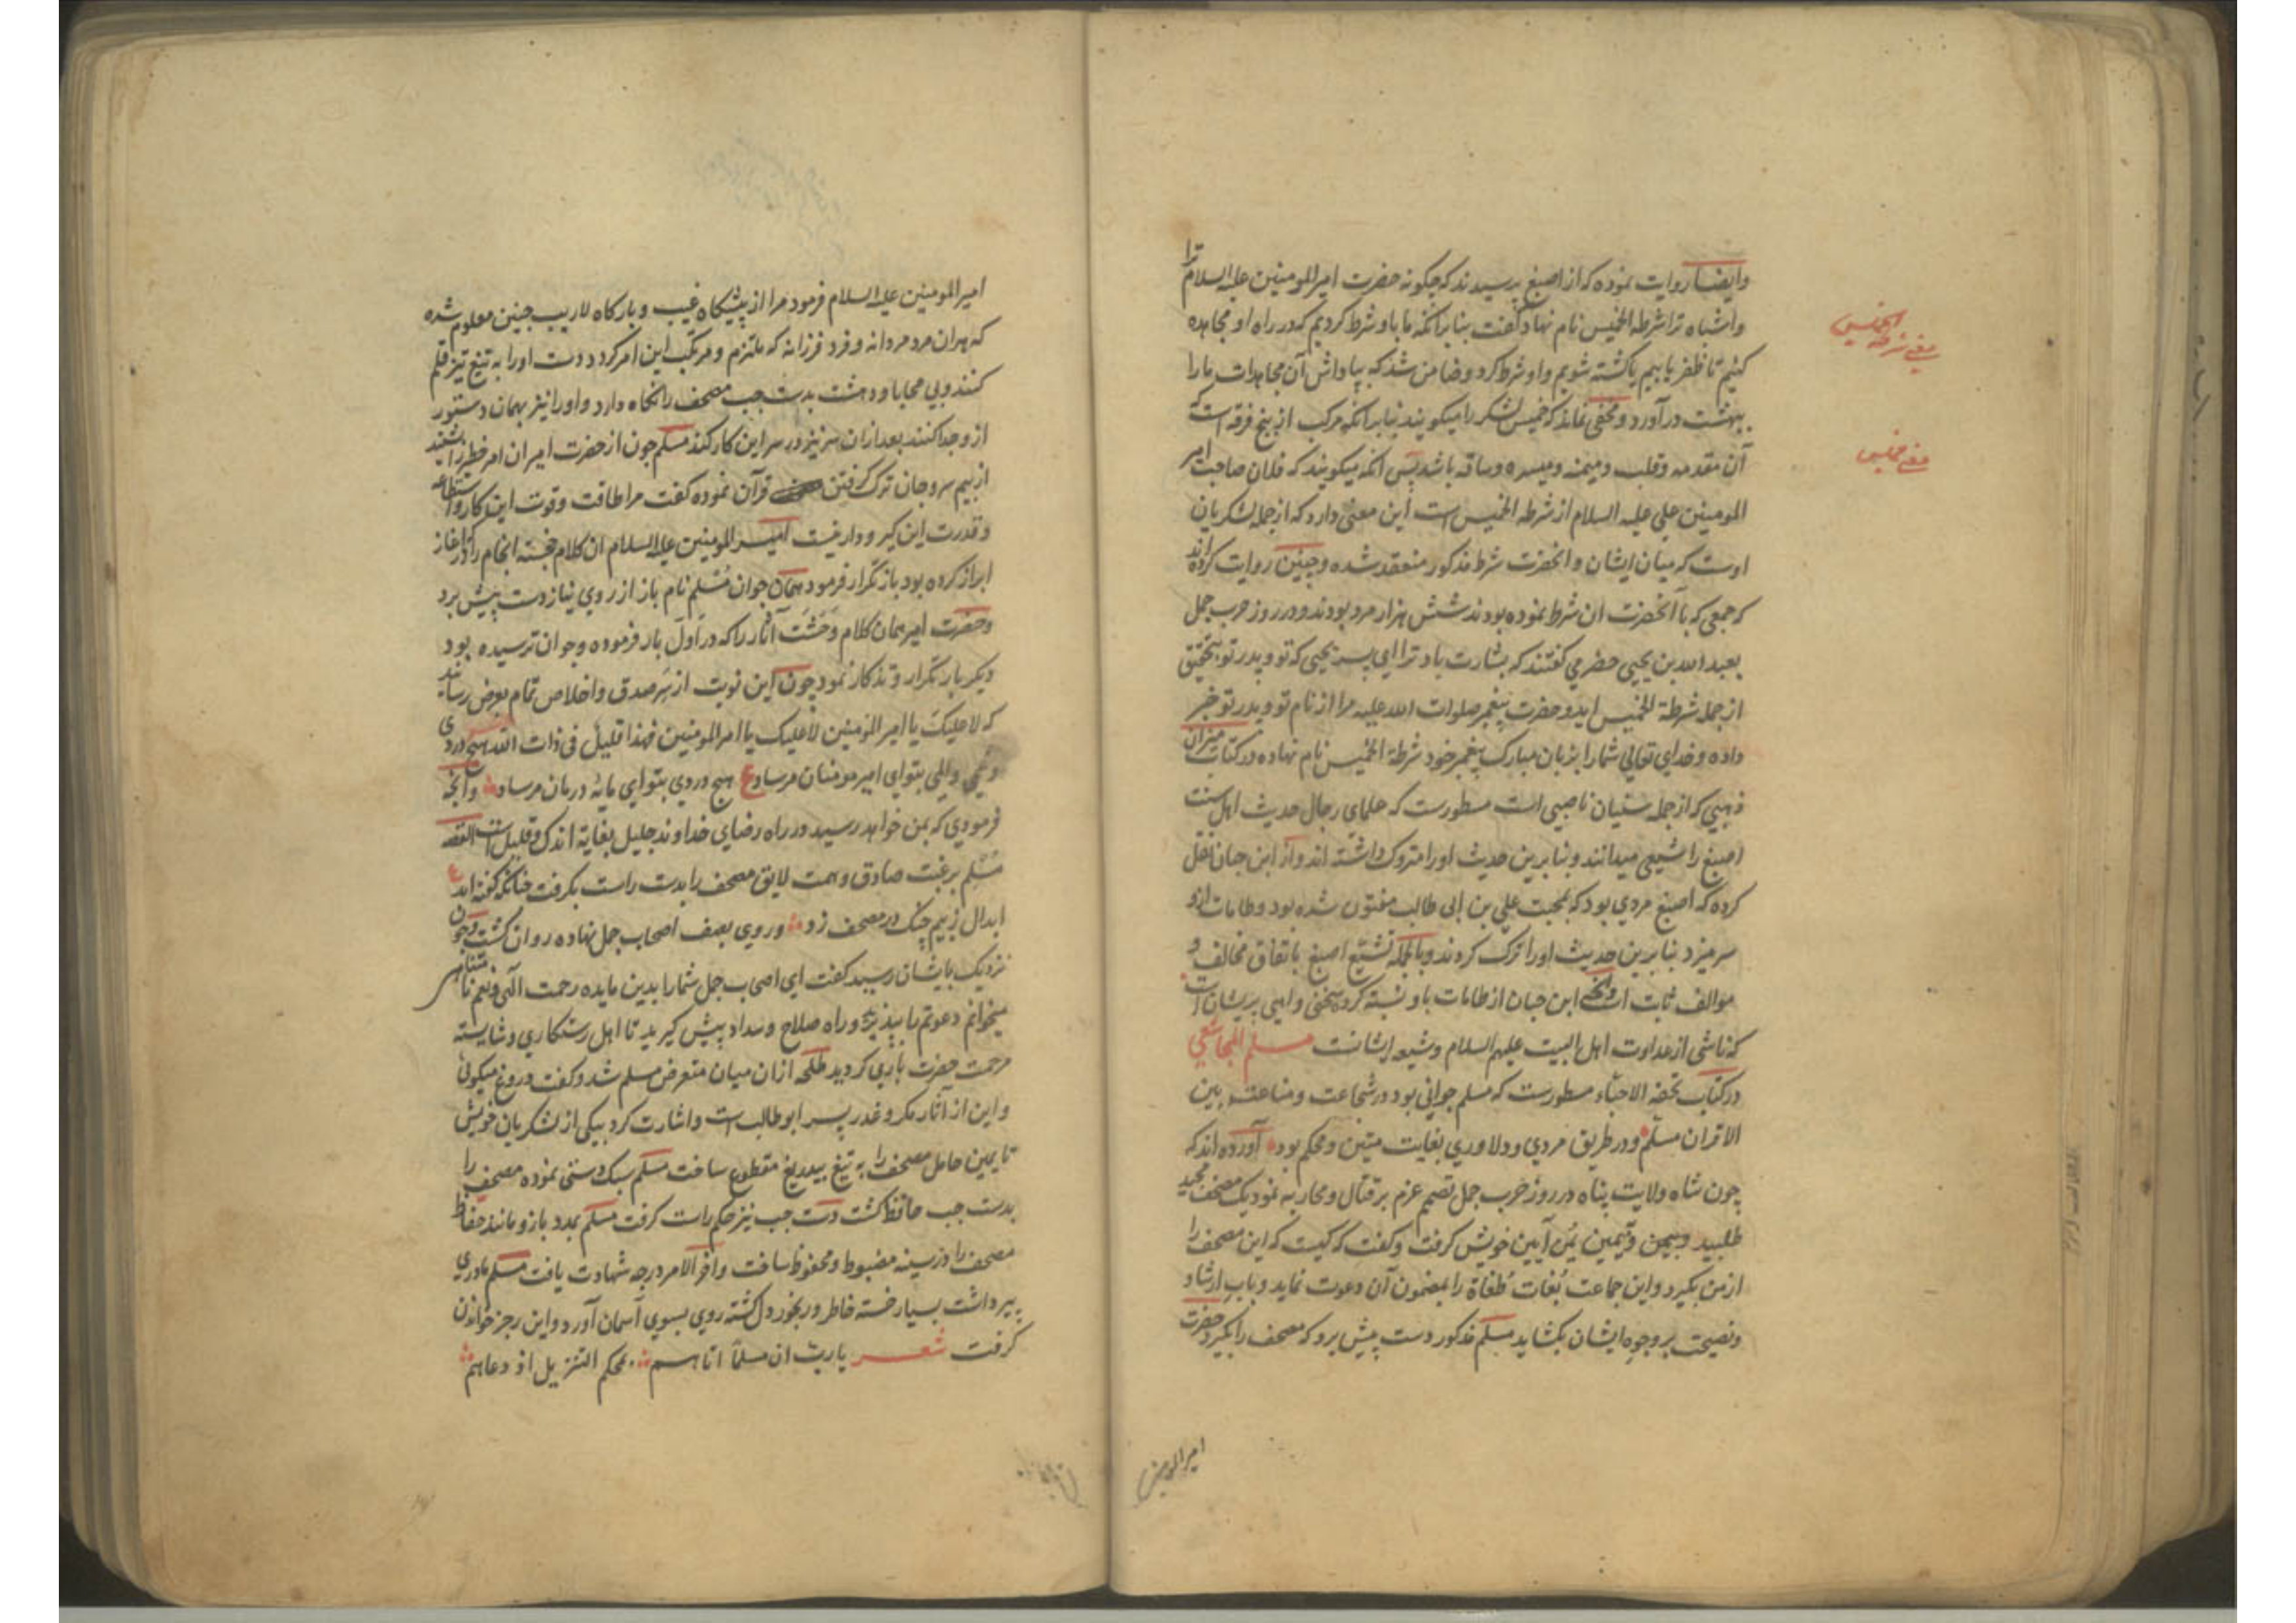 وایضا روایت نموده که از اصبغ پرسیدند که چگونه حضرت امیرالمومنین علیه السلام ترا
واشباه ترا شرطه الخمیس نام نهاد گفت بنا برانکه ما باو شرط کردیم که در راه او مجاهده
کنیم تا ظفر یابیم یا کشته شویم واو شرط کرد وضامن شد که بپاداش آن مجاهدات ما را
ببهشت درآورد ومخفی نماند که خمیس لشکر را میکویند بنا برانکه مرکب از پنج فرقه است که
آن مقدمه وقلب ومیمنه ومیسره وساقه باشد پس انکه میکویند که فلان صاحب امیر
المومنین علی علیه السلام از شرطه الخمیس است این معنی دارد که از جمله لشکریان
اوست که میان ایشان وانحضرت شرط مذکور منعقد شده وچنین روایت کرده اند
که جمعی که با آنحضرت ان شرط نموده بودند شش هزار مرد بودند ودر روز حرب جمل
بعبد الله بن یحیی حضرمی گفتند که بشارت باد ترا ای پسر یحیی که تو وپدر تو بتحقیق
از جمله شرطة الخمیس اید وحضرت پیغمبر صلوات الله علیه مرا از نام تو وپدر تو خبر
داده وخدای تعالی شما را بزبان مبارک پیغمبر خود شرطة الخمیس نام نهاده ودر کتاب میزان
ذهبی که از جمله سنیان ناصبی است مسطورست که علمای رجال حدیث اهل سنت
اصبغ را شیعی میدانند وبنا برین حدیث اورا متروک داشته اند واز ابن حبان نقل
کرده که اصبغ مردی بود که بمحبت علی بن ابی طالب مفتون شده بود وطامات ازو
سر میزد بنا برین حدیث اورا ترک کردند وبالجمله تشیع اصبغ باتفاق مخالف و
موالف ثابت است وانچه ابن حبان از طامات باو نسبته کرده سخنی واهی پریشان است
که ناشی از عداوت اهل البیت علیهم السلام وشیعه ایشانست مسلم المجاشعی
در کتاب تحفه الاحباء مسطورست که مسلم جوانی بود در شجاعت ومناعت بین
الاقران مسلّم ودر طریق مردی ودلاوری بغایت متین ومحکم بود آورده اند که
چون شاه ولایت پناه در روز حرب جمل تصمیم عزم بر قتال ومحاربه نمود یک مصحف مجید
طلبید وبیمن وتیمین یمن آیین خویش کرفت وکفت که کیست که این مصحف را
از من بکیرد واین جماعت بغات طغاة را بمضمون آن دعوت نماید وباب ارشاد
ونصیحت بر وجوه ایشان بکشاید مسلم مذکور دست پیش برد که مصحف را بکیرد حضرت
امیرالمومنین
معنی شرطه الخمیس
معنی خمیس
امیرالمومنین علیه السلام فرمود مرا از پیشکاه غیب وبارکاه لاریب چنین معلوم شده
که هران مرد مردانه وفرد فرزانه که ملتزم ومرتکب این امر کردد دست اورا به تیغ تیز قلم
کنند وبی محابا ودهشت بدست چپ مصحف را نکاه دارد واورا نیز بهمان دستور
از وجدا کنند بعد ازان سر نیز در سر این کار کند مسلم چون از حضرت امیر ان امر خطر را شنید
از بیم سر وجان ترک کرفتن قرآن نموده کفت مرا طاقت وقوت این کار واستطاعه
وقدرت این کیر ودار نیست امیرالمومنین علیه السلام ان کلام خجسته انجام را که در اغاز
ابراز کرده بود باز تکرار فرمود همان جوان مسلم نام باز از روی نیاز دست پیش برد
وحضرت امیر همان کلام وحشت آثار را که در اول بار فرموده وجوان ترسیده بود
دیکر بار تکرار وتذکار نمود چون این نوبت از سر صدق واخلاص تمام بعرض رسانید
که لاعلیک یا امیر المومنین لاعلیک یا امیر المومنین فهذا قلیل فی ذات الله هیچ دردی
وغمی والمی بتو ای امیر مومنان مرساد ع هیچ دردی بتو ای مایه درمان مرساد وانچه
فرمودی که بمن خواهد رسید در راه رضای خداوند جلیل بغایة اندک وقلیل است القصه
مسلم برغبت صادق وهمت لایق مصحف را بدست راست بکرفت چنانکه کفته اند ع
ابدال زبیم چنک در مصحف زد وروی بصف اصحاب جمل نهاده روان کشت وچون
نزدیک بایشان رسید کفت ای اصحاب جمل شما را بدین مایده رحمت الهی ونعم نامتناهی
میخوانم دعوتم را بپذیرید وراه صلاح وسداد پیش کیرید تا اهل رستکاری وشایسته
مرحمت حضرت باری کردید طلحه ازان میان متعرض مسلم شد وکفت دروغ میکوئی
واین از آثار مکر وغدر پسر ابوطالبست واشارت کرد بیکی از لشکریان خویش
تا یمین حامل مصحف را به تیغ بیدریغ مقطوع ساخت مسلم سبک دستی نموده مصحف را
بدست چپ حافظ کشت دست چپ نیز حکم راست کرفت مسلم بمدد بازو مانند حفاظ
مصحف را در سینه مضبوط ومحفوظ ساخت واخر الامر درجه شهادت یافت مسلم مادری
پیر داشت بسیار خسته خاطر ورنجور دل کشته روی بسوی آسمان آورد واین رجز خواندن
کرفت شعر یارب ان مسلما اتاهم بمحکم التنزیل اذ دعاهم